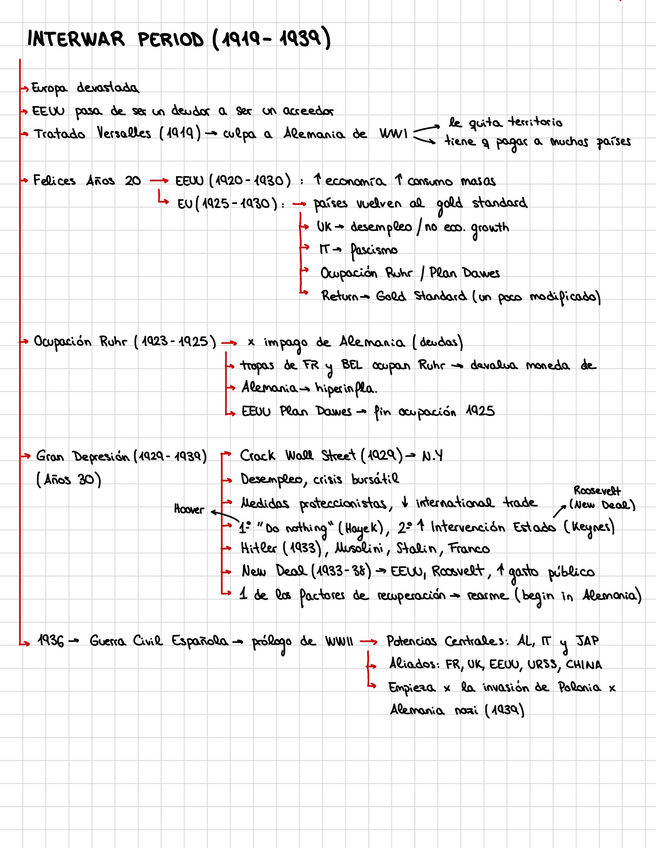 INTERWAR PERIOD (1919-1939)
→ Europa devastada
→ EEUU pasa de ser un deudor a ser un acreedor
→ Tratado Versalles (1919) → culpa a Alemania de WWI → le quita territorio
→ tiene q pagar a muchos países
→ Felices Años 20 → EEUU (1920-1930) : ↑ economía ↑ consumo masas
↳ EU (1925-1930) : → países vuelven al gold standard
→ UK → desempleo / no eco. growth
→ IT → fascismo
→ Ocupación Ruhr / Plan Dawes
→ Return → Gold Standard (un poco modificado)
→ Ocupación Ruhr (1923-1925) → x impago de Alemania (deudas)
→ tropas de FR y BEL ocupan Ruhr → devalua moneda de
→ Alemania → hiperinfla.
→ EEUU Plan Dawes → fin ocupación 1925
→ Gran Depresión (1929-1939) → Crack Wall Street (1929) → N.Y
(Años 30) → Desempleo, crisis bursátil
→ Medidas proteccionistas, ↓ international trade
Roosevelt
(New Deal)
Hoover
→ 1º "Do nothing" (Hayek), 2º ↑ Intervención Estado (Keynes)
→ Hitler (1933), Musolini, Stalin, Franco
→ New Deal (1933-38) → EEUU, Roosvelt, ↑ gasto público
→ 1 de los factores de recuperación → rearme (begin in Alemania)
→ 1936 → Guerra Civil Española → prólogo de WWII → Potencias Centrales: AL, IT y JAP
→ Aliados: FR, UK, EEUU, URSS, CHINA
→ Empieza x la invasión de Polonia x
Alemania nazi (1939)